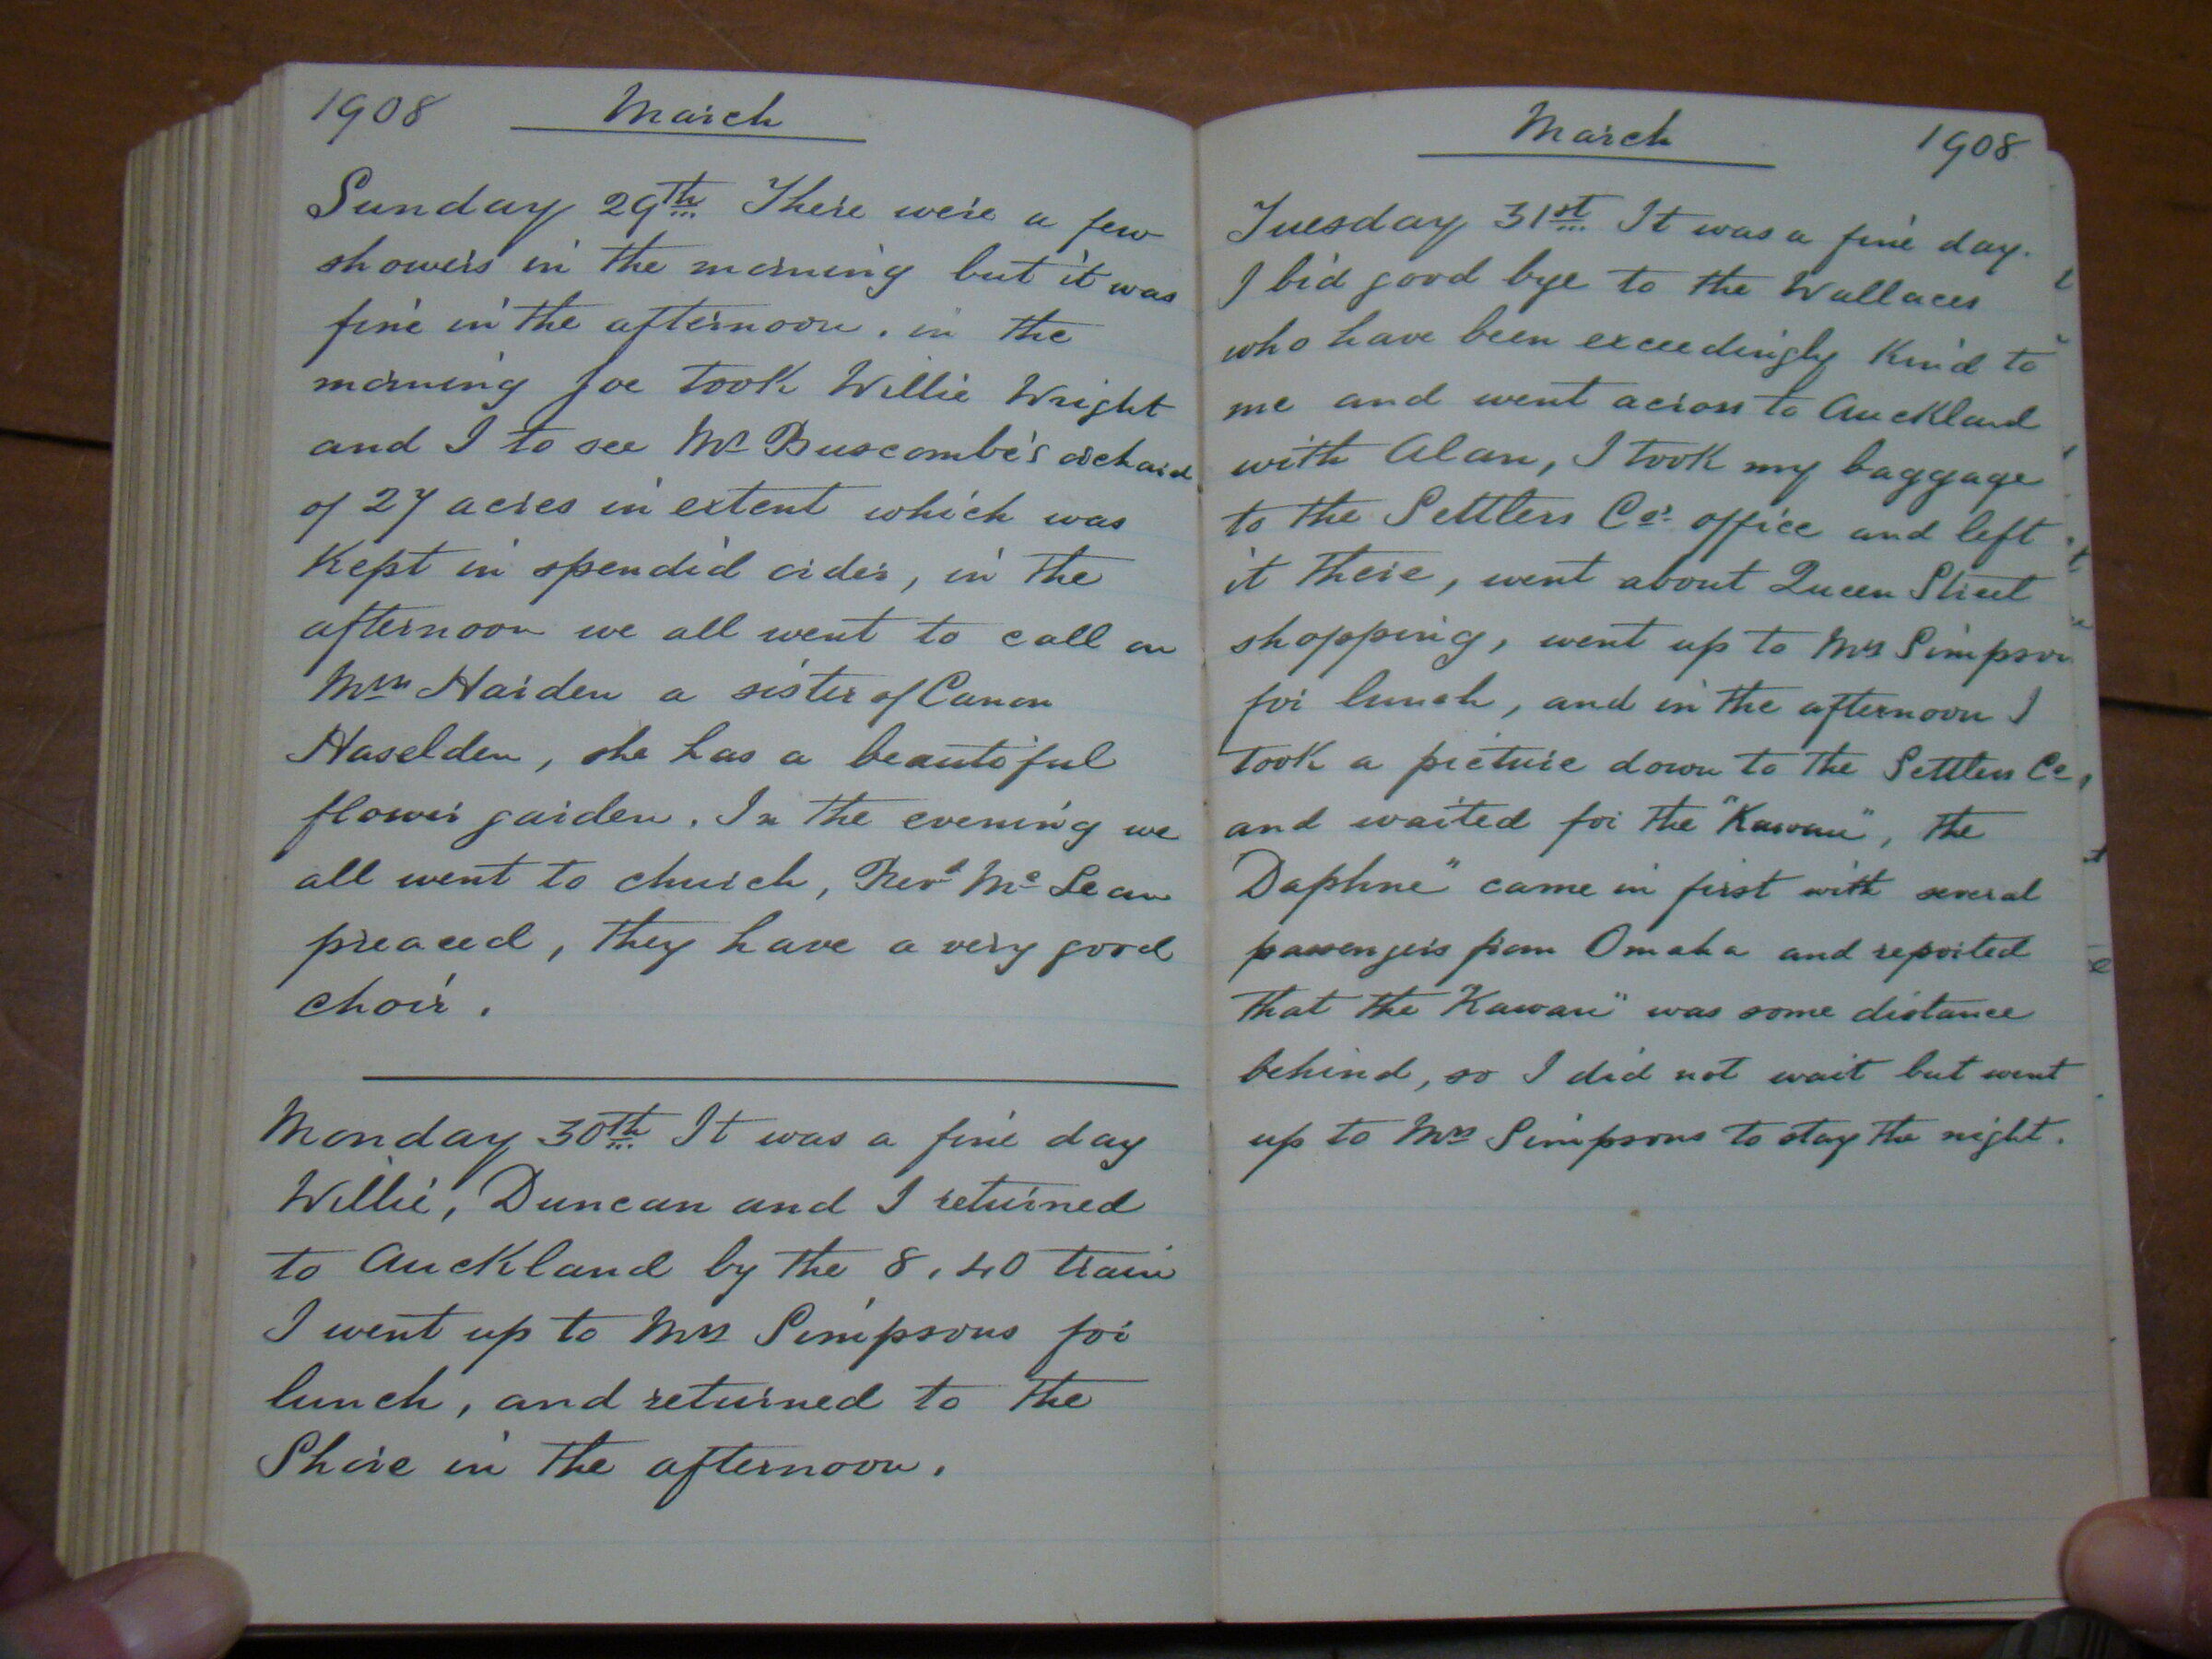 1908 March
Sunday 29th There were a few
showers in the morning but it was
fine in the afternoon. in the
morning Joe took Willie Wright
and I to see Mr Buscombe's orchard
of 27 acres in extent which was
kept in spendid order, in the
afternoon we all went to call on
Mrs Harden a sister of Canon
Haselden, she has a beautiful
flower garden. In the evening we
all went to church, Revd Mc Lean
preaced, they have a very good
choir.
Monday 30th It was a fine day
Willie, Duncan and I returned
to Auckland by the 8.40 train
I went up to Mrs Simpsons for
lunch, and returned to the
Shore in the afternoon.
March 1908
Tuesday 31st It was a fine day.
I bid good bye to the Wallaces
who have been exceedingly kind to
me and went across to Auckland
with Alan, I took my baggage
to the Settlers Co's office and left
it there, went about Queen Street
shopping, went up to Mrs Simpson
for lunch, and in the afternoon I
took a picture down to the Settlers Co,
and waited for the "Kawau", the
Daphne" came in first with several
passengers from Omaha and reported
that the "Kawau" was some distance
behind, so I did not wait but went
up to Mrs Simpsons to stay the night.